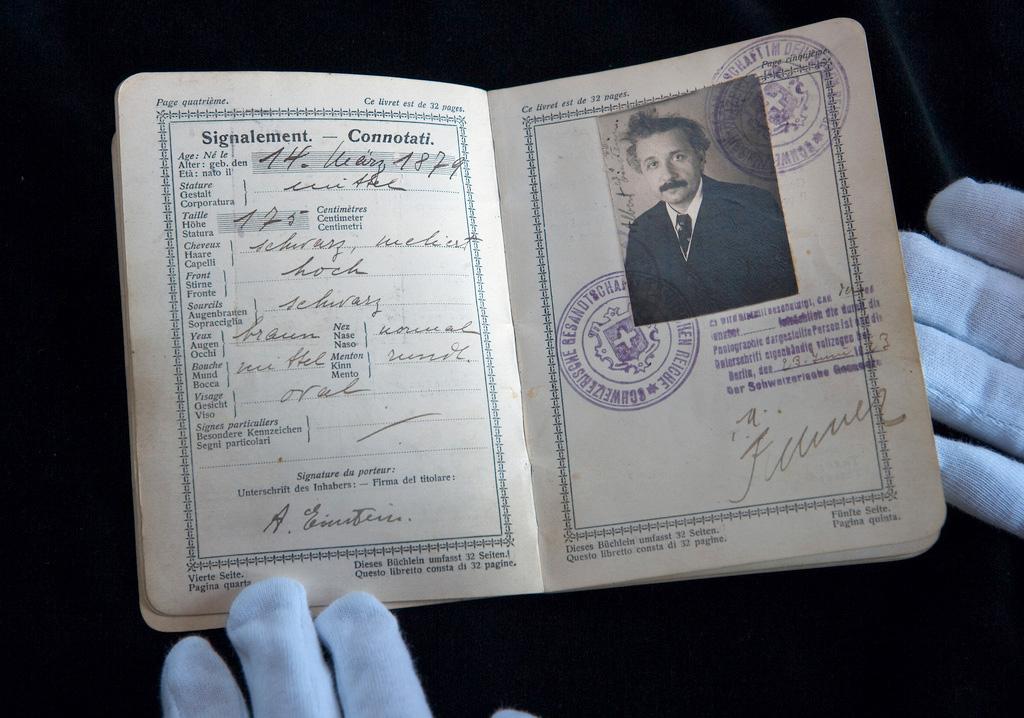 Page quatrième. Ce livret est de 32 pages.
Signalement. — Connotati.
Age: Né le
Alter: geb. den 14. März 1879
Età: nato il
Stature
Gestalt mittel
Corporatura
Taille Centimètres
Höhe 175 Centimeter
Statura Centimetri
Cheveux
Haare schwarz, meliert
Capelli
Front
Stirne hoch
Fronte
Sourcils
Augenbrauen schwarz
Sopracciglia
Yeux Nez
Augen braun Nase normal
Occhi Naso
Bouche Menton
Mund mittel Kinn rundl.
Bocca Mento
Visage
Gesicht oval
Viso
Signes particuliers
Besondere Kennzeichen —
Segni particolari
Signature du porteur:
Unterschrift des Inhabers: — Firma del titolare:
A. Einstein.
Vierte Seite. Dieses Büchlein umfasst 32 Seiten.
Pagina quarta. Questo libretto consta di 32 pagine.
Ce livret est de 32 pages. Page cinquième.
SCHWEIZERISCHE GESANDTSCHAFT
SCHWEIZERISCHE GESANDTSCHAFT IM DEUTSCHEN REICHE
durch die
Photographie dargestellte Person ist und die
Unterschrift eigenhändig vollzogen hat.
Berlin, den 23. Juni
Der Schweizerische Gesandte
Fünfte Seite.
Dieses Büchlein umfasst 32 Seiten. Pagina quinta.
Questo libretto consta di 32 pagine.